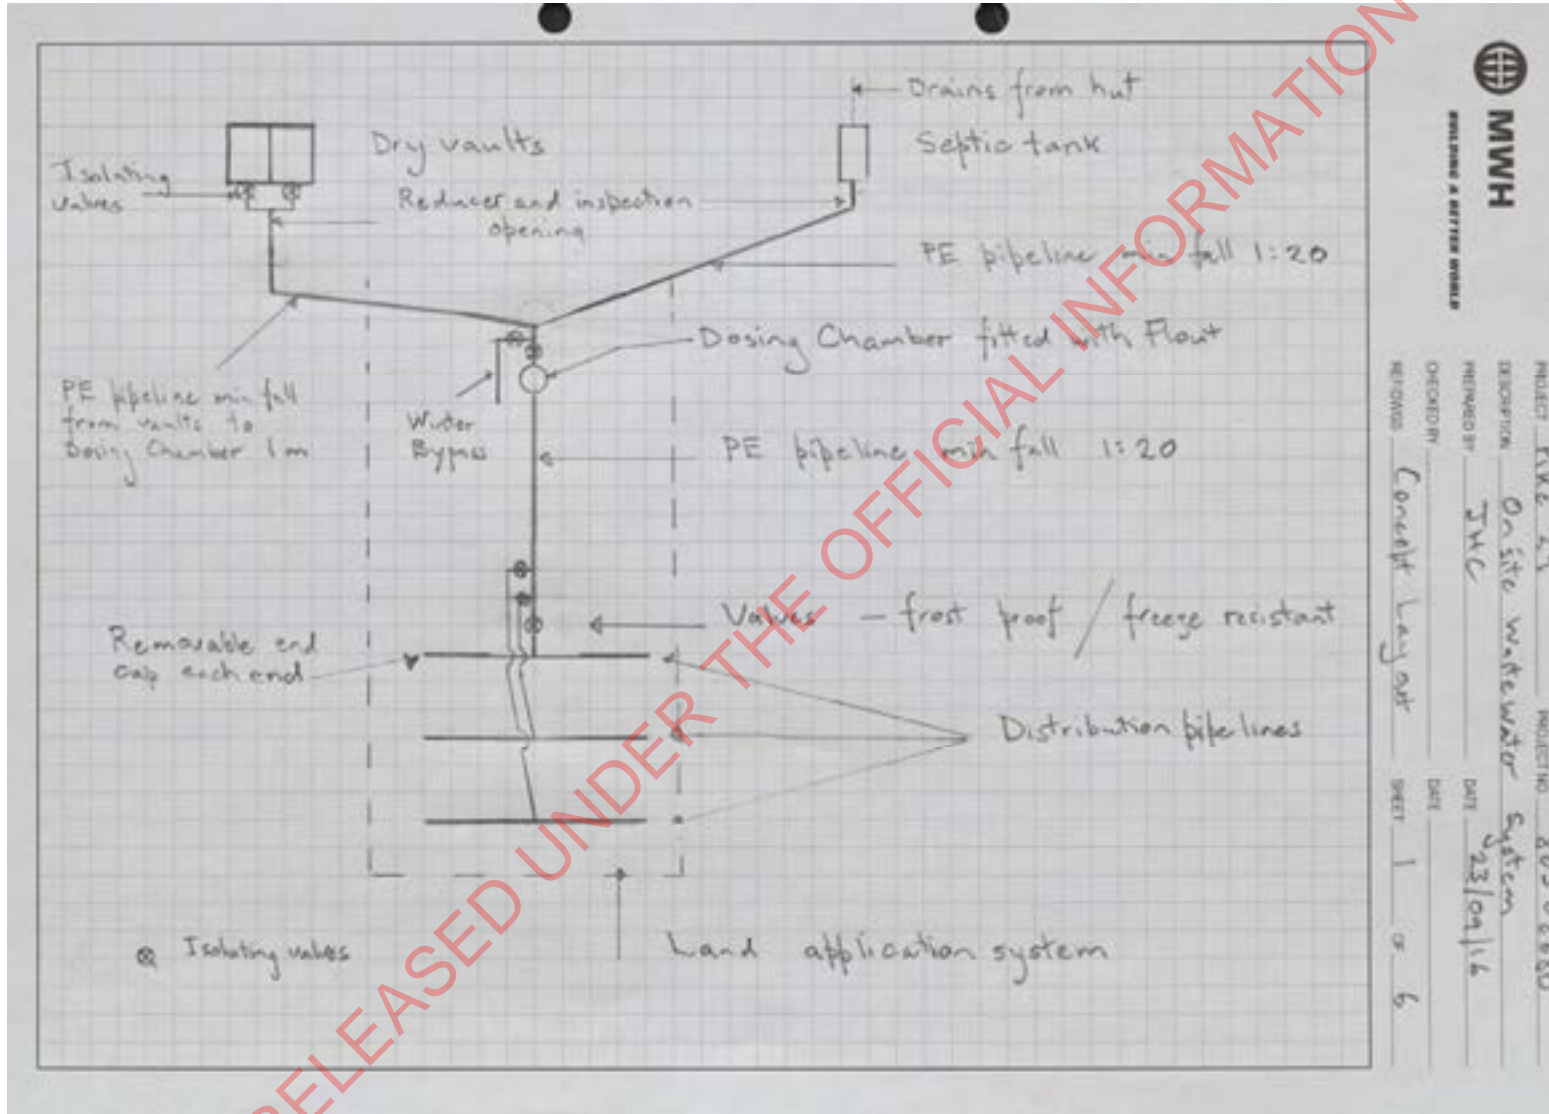 Drains from hut
Dry vaults
Septic tank
Isolating
valves
Reducer and inspection
opening
PE pipeline min fall 1:20
Dosing Chamber fitted with Flout
PE pipeline min fall
from vaults to
Dosing Chamber 1m
Winter
Bypass
PE pipeline min fall 1:20
Valves - frost proof / freeze resistant
Removable end
cap each end
Distribution pipelines
Isolating valves
Land application system
RELEASED UNDER THE OFFICIAL INFORMATION
MWH
BUILDING A BETTER WORLD
PROJECT PROJECT NO
DESCRIPTION On site Wastewater System
PREPARED BY JHC DATE 23/09/16
CHECKED BY DATE
REF DWGS Concept Layout SHEET 1 OF 6